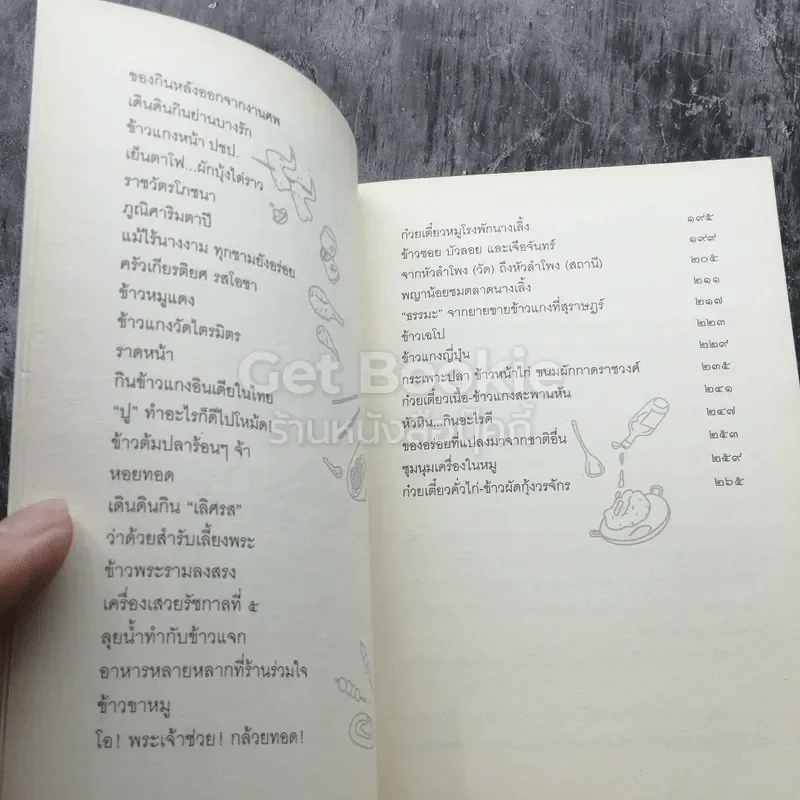 ของกินหลังออกจากงานศพ
เดินดินกินย่านบางรัก
ข้าวแกงหน้า ปชป.
เย็นตาโฟ...ผักบุ้งไต่ราว
ราชวัตรโภชนา
ภูณิศาริมตาปี
แม้ไร้นางงาม ทุกชามยังอร่อย
ครัวเกียรติยศ รสโอชา
ข้าวหมูแดง
ข้าวแกงวัดไตรมิตร
ราดหน้า
กินข้าวแกงอินเดียในไทย
"ปู" ทำอะไรก็ดีไปโหม้ด!
ข้าวต้มปลาร้อนๆ จ้า
หอยทอด
เดินดินกิน "เลิศรส"
ว่าด้วยสำรับเลี้ยงพระ
ข้าวพระรามลงสรง
เครื่องเสวยรัชกาลที่ ๕
ลุยน้ำทำกับข้าวแจก
อาหารหลายหลากที่ร้านร่วมใจ
ข้าวขาหมู
โอ! พระเจ้าช่วย! กล้วยทอด!
ก๋วยเตี๋ยวหมูโรงพักนางเลิ้ง ๑๙๕
ข้าวซอย บัวลอย และเจือจันทร์ ๑๙๙
จากหัวลำโพง (วัด) ถึงหัวลำโพง (สถานี) ๒๐๕
พญาน้อยชมตลาดนางเลิ้ง ๒๑๑
"ธรรมะ" จากยายขายข้าวแกงที่สุราษฎร์ ๒๑๗
ข้าวเฉโป ๒๒๓
ข้าวแกงญี่ปุ่น ๒๒๙
กระเพาะปลา ข้าวหน้าไก่ ขนมผักกาดราชวงศ์ ๒๓๕
ก๋วยเตี๋ยวเนื้อ-ข้าวแกงสะพานหัน ๒๔๑
หัวหิน...กินอะไรดี ๒๔๗
ของอร่อยที่แปลงมาจากชาติอื่น ๒๕๓
ชุมนุมเครื่องในหมู ๒๕๙
ก๋วยเตี๋ยวคั่วไก่-ข้าวผัดกุ้งวรจักร ๒๖๕
Get Bookie
ร้านหนังสือบุ๊คกี้